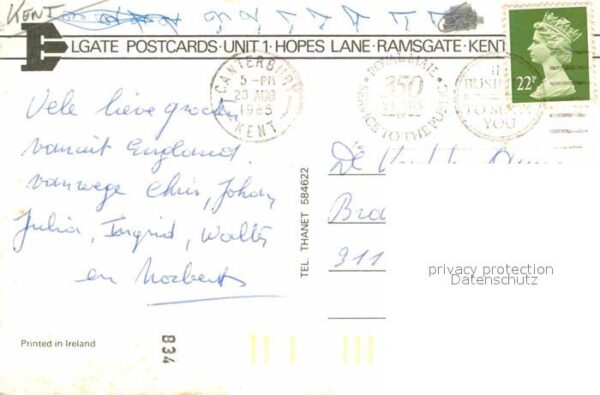 KENT
ELGATE POSTCARDS · UNIT 1 · HOPES LANE · RAMSGATE · KENT
CANTERBURY
5 - PM
23 AUG
1985
KENT
ROYAL MAIL
350
YEARS
OF
SERVICE TO THE PUBLIC
22P
Vele lieve groeten
vanuit England
vanwege Chris, Johan,
Julia, Ingrid, Walter
en Norbert
TEL. THANET 584622
De
Bra
311
privacy protection
Datenschutz
Printed in Ireland
834